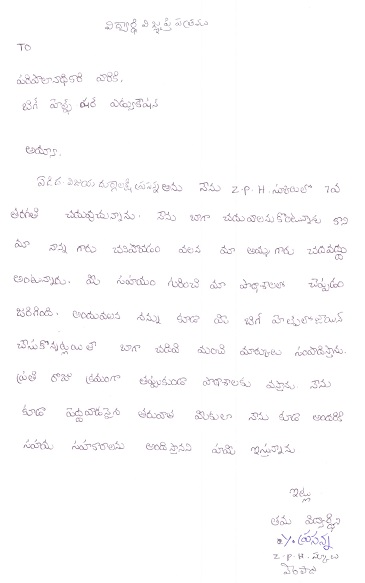 విద్యార్థి విజ్ఞప్తి పత్రము
TO
పరిపాలనాధికారి వారికి,
బిగ్ హెల్ప్ ఫర్ ఎడ్యుకేషన్
అయ్యా,
విజయ దుర్గాలక్ష్మి ప్రసన్న అను నేను Z.P.H. స్కూలులో 7వ
తరగతి చదువుచున్నాను. నేను బాగా చదువాలనుకొంటున్నాను కాని
మా నాన్న గారు చనిపోవడం వలన మా అమ్మ గారు చదివద్దు
అంటున్నారు. మీ సహయం గురించి మా పాఠశాలలో చెప్పడం
జరిగింది. అందువలన నన్ను కూడా మీ బిగ్ హెల్ప్‌లో జాయిన్
చేసుకొన్నట్లయితే బాగా చదివి మంచి మార్కులు సంపాదిస్తాను.
ప్రతి రోజు క్రమంగా తప్పకుండా పాఠశాలకు వస్తాను. నేను
కూడా పెద్దవాడనైన తరువాత మీకులా నేను కూడా అందరికి
సహయ సహకారాలను అందిస్తానని హమి ఇస్తున్నాను
ఇట్లు
తమ విద్యార్థిని
Y. ప్రసన్న
Z-P-H. స్కూలు